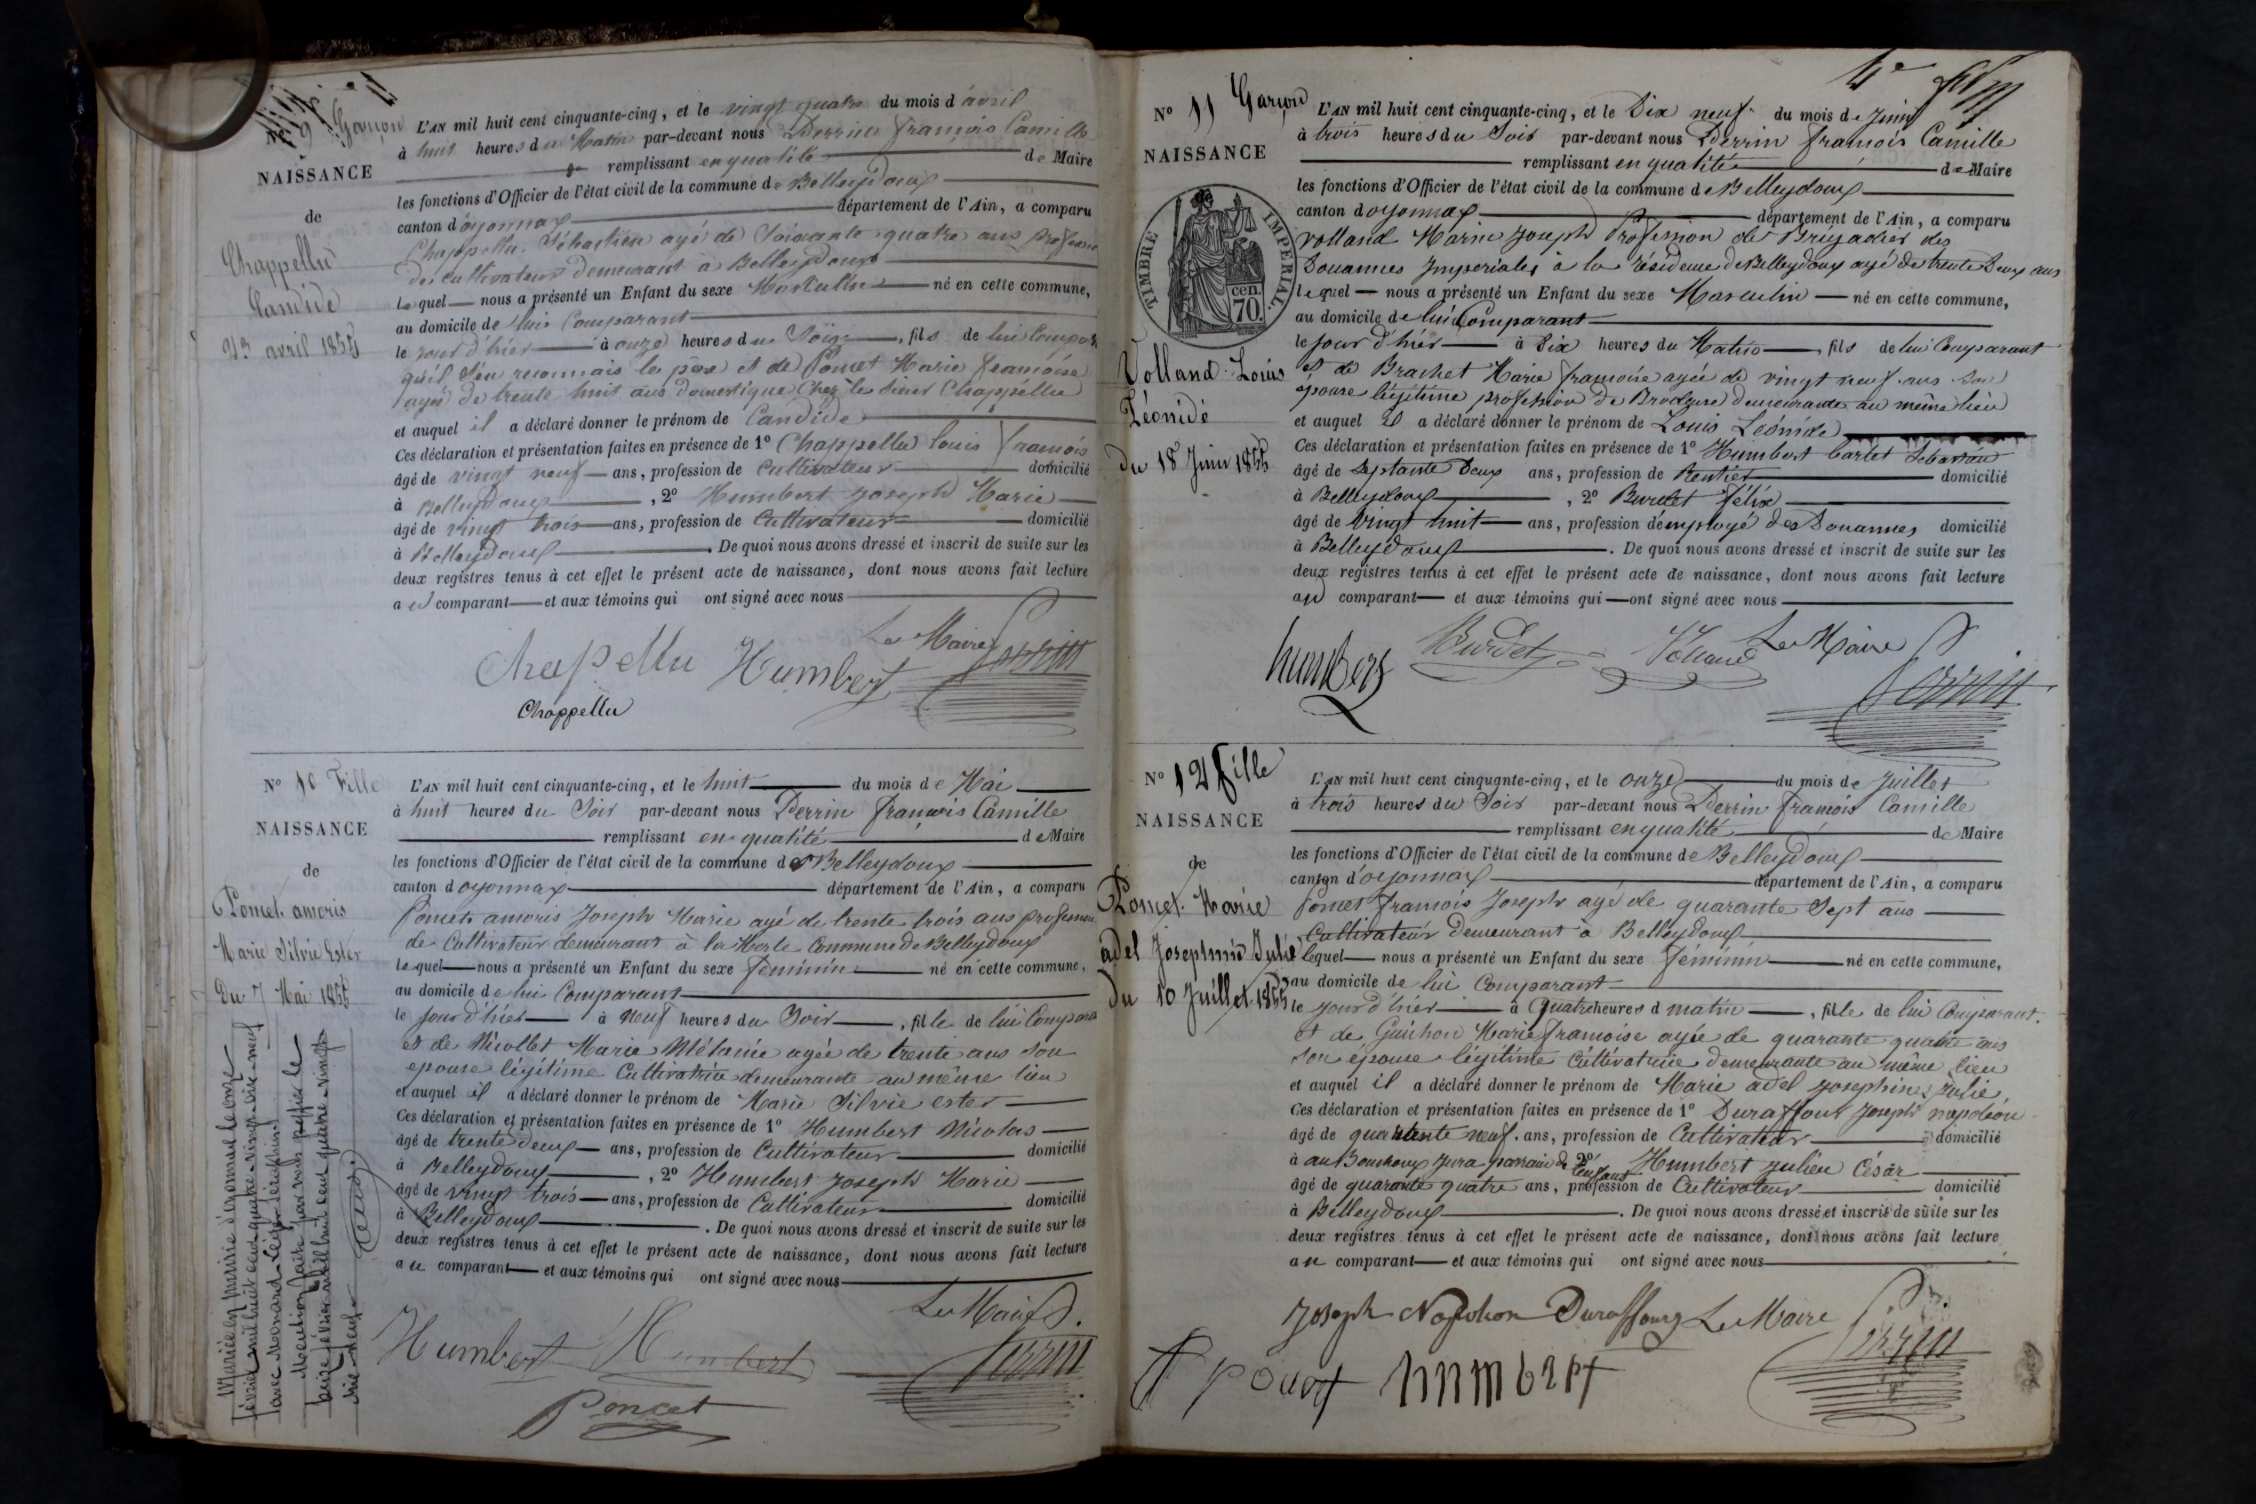 N° 9 Garçon
NAISSANCE
de
Chappellu
Candide
23 avril 1855
L'AN mil huit cent cinquante-cinq, et le vingt quatre du mois d'avril
à huit heures du Matin par-devant nous Perrin françois Camille
remplissant en qualité de Maire
les fonctions d'Officier de l'état civil de la commune de Belleydoux
canton d'oyonnax département de l'Ain, a comparu
Chappellu Sébastien agé de Soixante quatre ans profession
de cultivateur demeurant à Belleydoux
lequel nous a présenté un Enfant du sexe Masculin né en cette commune,
au domicile de lui Comparant
le jour d'hier à onze heures du Soir, fils de lui Compart
qu'il s'en reconnais le père et de Poncet Marie françoise
agée de trente huit ans domestique Chez le sieur Chappellu
et auquel il a déclaré donner le prénom de Candide
Ces déclaration et présentation faites en présence de 1° Chappellu louis françois
âgé de vingt neuf ans, profession de Cultivateur domicilié
à Belleydoux, 2° Humbert Joseph Marie
âgé de vingt trois ans, profession de Cultivateur domicilié
à Belleydoux. De quoi nous avons dressé et inscrit de suite sur les
deux registres tenus à cet effet le présent acte de naissance, dont nous avons fait lecture
au comparant et aux témoins qui ont signé avec nous
Le Maire
Chapellu Humbert Perrin
Chappellu
N° 10 Fille
NAISSANCE
de
Poncet amoris
Marie Silvie Ester
Du 7 Mai 1855
Mariée en mairie d'oyonnax le onze
février mil huit cent quatre-vingt-dix-neuf
avec
Mention faite par nous greffier le
février mil huit cent quatre-vingt
dix-neuf
L'AN mil huit cent cinquante-cinq, et le huit du mois de Mai
à huit heures du Soir par-devant nous Perrin françois Camille
remplissant en qualité de Maire
les fonctions d'Officier de l'état civil de la commune de Belleydoux
canton d'oyonnax département de l'Ain, a comparu
Poncet amoris Joseph Marie agé de trente trois ans profession
de Cultivateur demeurant à la Merle Commune de Belleydoux
lequel nous a présenté un Enfant du sexe féminin né en cette commune,
au domicile de lui Comparant
le jour d'hier à neuf heures du Soir, fille de lui Comparant
et de Nicollet Marie Mélanie agée de trente ans son
epouse légitime Cultivatrice demeurante au même lieu
et auquel il a déclaré donner le prénom de Marie Silvie ester
Ces déclaration et présentation faites en présence de 1° Humbert Nicolas
âgé de trente deux ans, profession de Cultivateur domicilié
à Belleydoux, 2° Humbert Joseph Marie
âgé de vingt trois ans, profession de Cultivateur domicilié
à Belleydoux. De quoi nous avons dressé et inscrit de suite sur les
deux registres tenus à cet effet le présent acte de naissance, dont nous avons fait lecture
au comparant et aux témoins qui ont signé avec nous
Le Maire
Humbert Humbert Perrin
Poncet
4e
N° 11 Garçon
NAISSANCE
TIMBRE IMPERIAL.
70. cen.
Volland Louis
Léonide
du 18 Juin 1855
L'AN mil huit cent cinquante-cinq, et le Dix neuf du mois de Juin
à trois heures du Soir par-devant nous Perrin françois Camille
remplissant en qualité de Maire
les fonctions d'Officier de l'état civil de la commune de Belleydoux
canton d'oyonnax département de l'Ain, a comparu
Volland Marin Joseph Profession de Brigadier des
Douannes Imperiales à la résidence de Belleydoux agé de trente Deux ans
lequel nous a présenté un Enfant du sexe Masculin né en cette commune,
au domicile de lui Comparant
le jour d'hier à Dix heures du Matin, fils de lui Comparant
et de Brachet Marie françoise agée de vingt neuf ans son
épouse légitime profession de Brodeuse demeurante au même lieu
et auquel il a déclaré donner le prénom de Louis Léonide
Ces déclaration et présentation faites en présence de 1° Humbert Carlet Sébastien
âgé de Septante Deux ans, profession de Rentier domicilié
à Belleydoux, 2° Burdet félix
âgé de vingt huit ans, profession d'employé des Douannes domicilié
à Belleydoux. De quoi nous avons dressé et inscrit de suite sur les
deux registres tenus à cet effet le présent acte de naissance, dont nous avons fait lecture
au comparant et aux témoins qui ont signé avec nous
Humbert Burdet Volland Le Maire
Perrin
N° 12 fille
NAISSANCE
de
Poncet Marie
adel Josephine Julie
du 10 Juillet 1855
L'AN mil huit cent cinquante-cinq, et le onze du mois de Juillet
à trois heures du Soir par-devant nous Perrin françois Camille
remplissant en qualité de Maire
les fonctions d'Officier de l'état civil de la commune de Belleydoux
canton d'oyonnax département de l'Ain, a comparu
Poncet françois Joseph agé de quarante Sept ans
Cultivateur demeurant à Belleydoux
lequel nous a présenté un Enfant du sexe féminin né en cette commune,
au domicile de lui Comparant
le jour d'hier à quatre heures d matin, fille de lui Comparant.
et de Guichon Marie françoise agée de quarante quatre ans
son épouse légitime Cultivatrice demeurante au même lieu
et auquel il a déclaré donner le prénom de Marie adel Josephine Julie
Ces déclaration et présentation faites en présence de 1° Duraffour Joseph napoléon
âgé de quarante neuf ans, profession de Cultivateur domicilié
à au Bouchoux Jura parrain de l'enfant 2° Humbert Julien César
âgé de quarante quatre ans, profession de Cultivateur domicilié
à Belleydoux. De quoi nous avons dressé et inscrit de suite sur les
deux registres tenus à cet effet le présent acte de naissance, dont nous avons fait lecture
au comparant et aux témoins qui ont signé avec nous
Joseph Napoleon Duraffourg Le Maire
Perrin
humbert